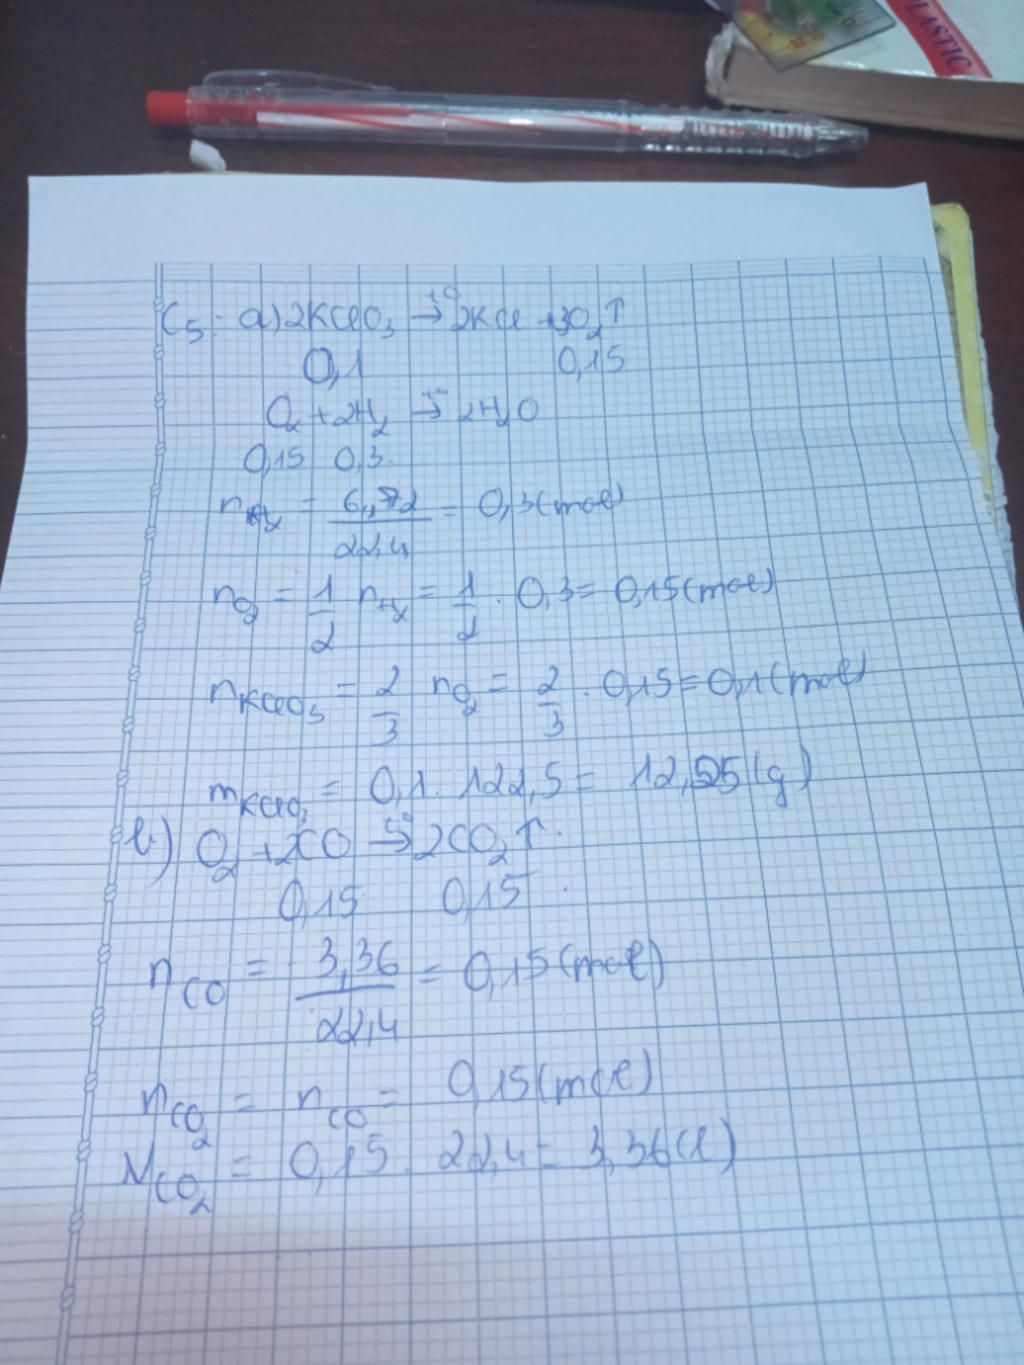 LASTIC
C5: a) 2KClO3 →t° 2KCl + 3O2↑
0,1 0,15
O2 + 2H2 →t° 2H2O
0,15 0,3
nH2 = 6,72/22,4 = 0,3 (mol)
nO2 = 1/2 nH2 = 1/2 . 0,3 = 0,15 (mol)
nKClO3 = 2/3 nO2 = 2/3 . 0,15 = 0,1 (mol)
mKClO3 = 0,1 . 122,5 = 12,25 (g)
b) O2 + 2CO →t° 2CO2↑.
0,15 0,15 .
nCO = 3,36/22,4 = 0,15 (mol)
nCO2 = nCO = 0,15 (mol)
VCO2 = 0,15 . 22,4 = 3,36 (l)